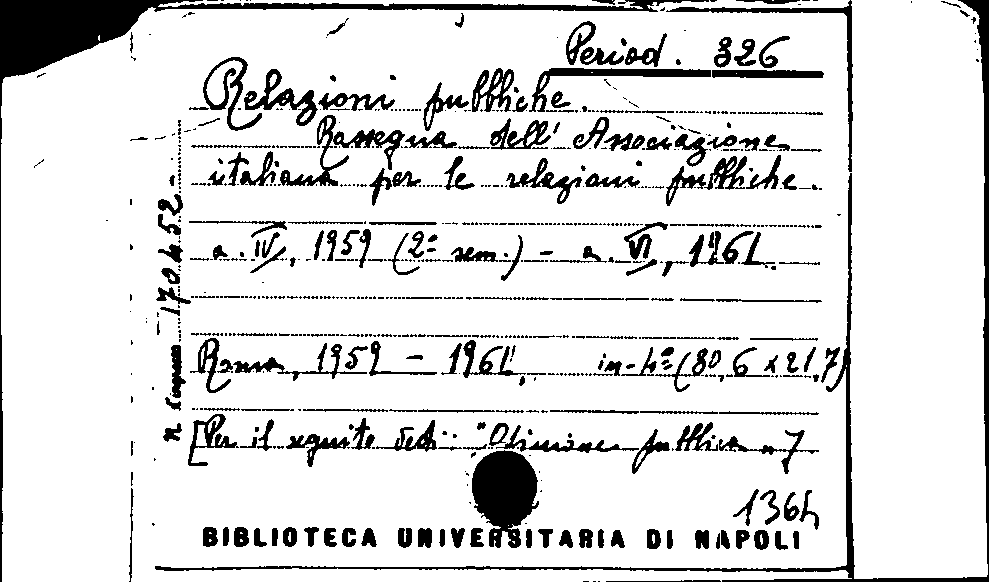 Period. 326
Relazioni pubbliche.
Rassegna dell' Associazione
italiana per le relazioni pubbliche.
a. IV, 1959 (2º sem.) - a. VI, 1961.
Roma, 1959 - 1961, in-4º (30,6 x 21,7)
[Per il seguito vedi: "Opinione pubblica"]
1364
BIBLIOTECA UNIVERSITARIA DI NAPOLI
n. d'ingresso 170452-